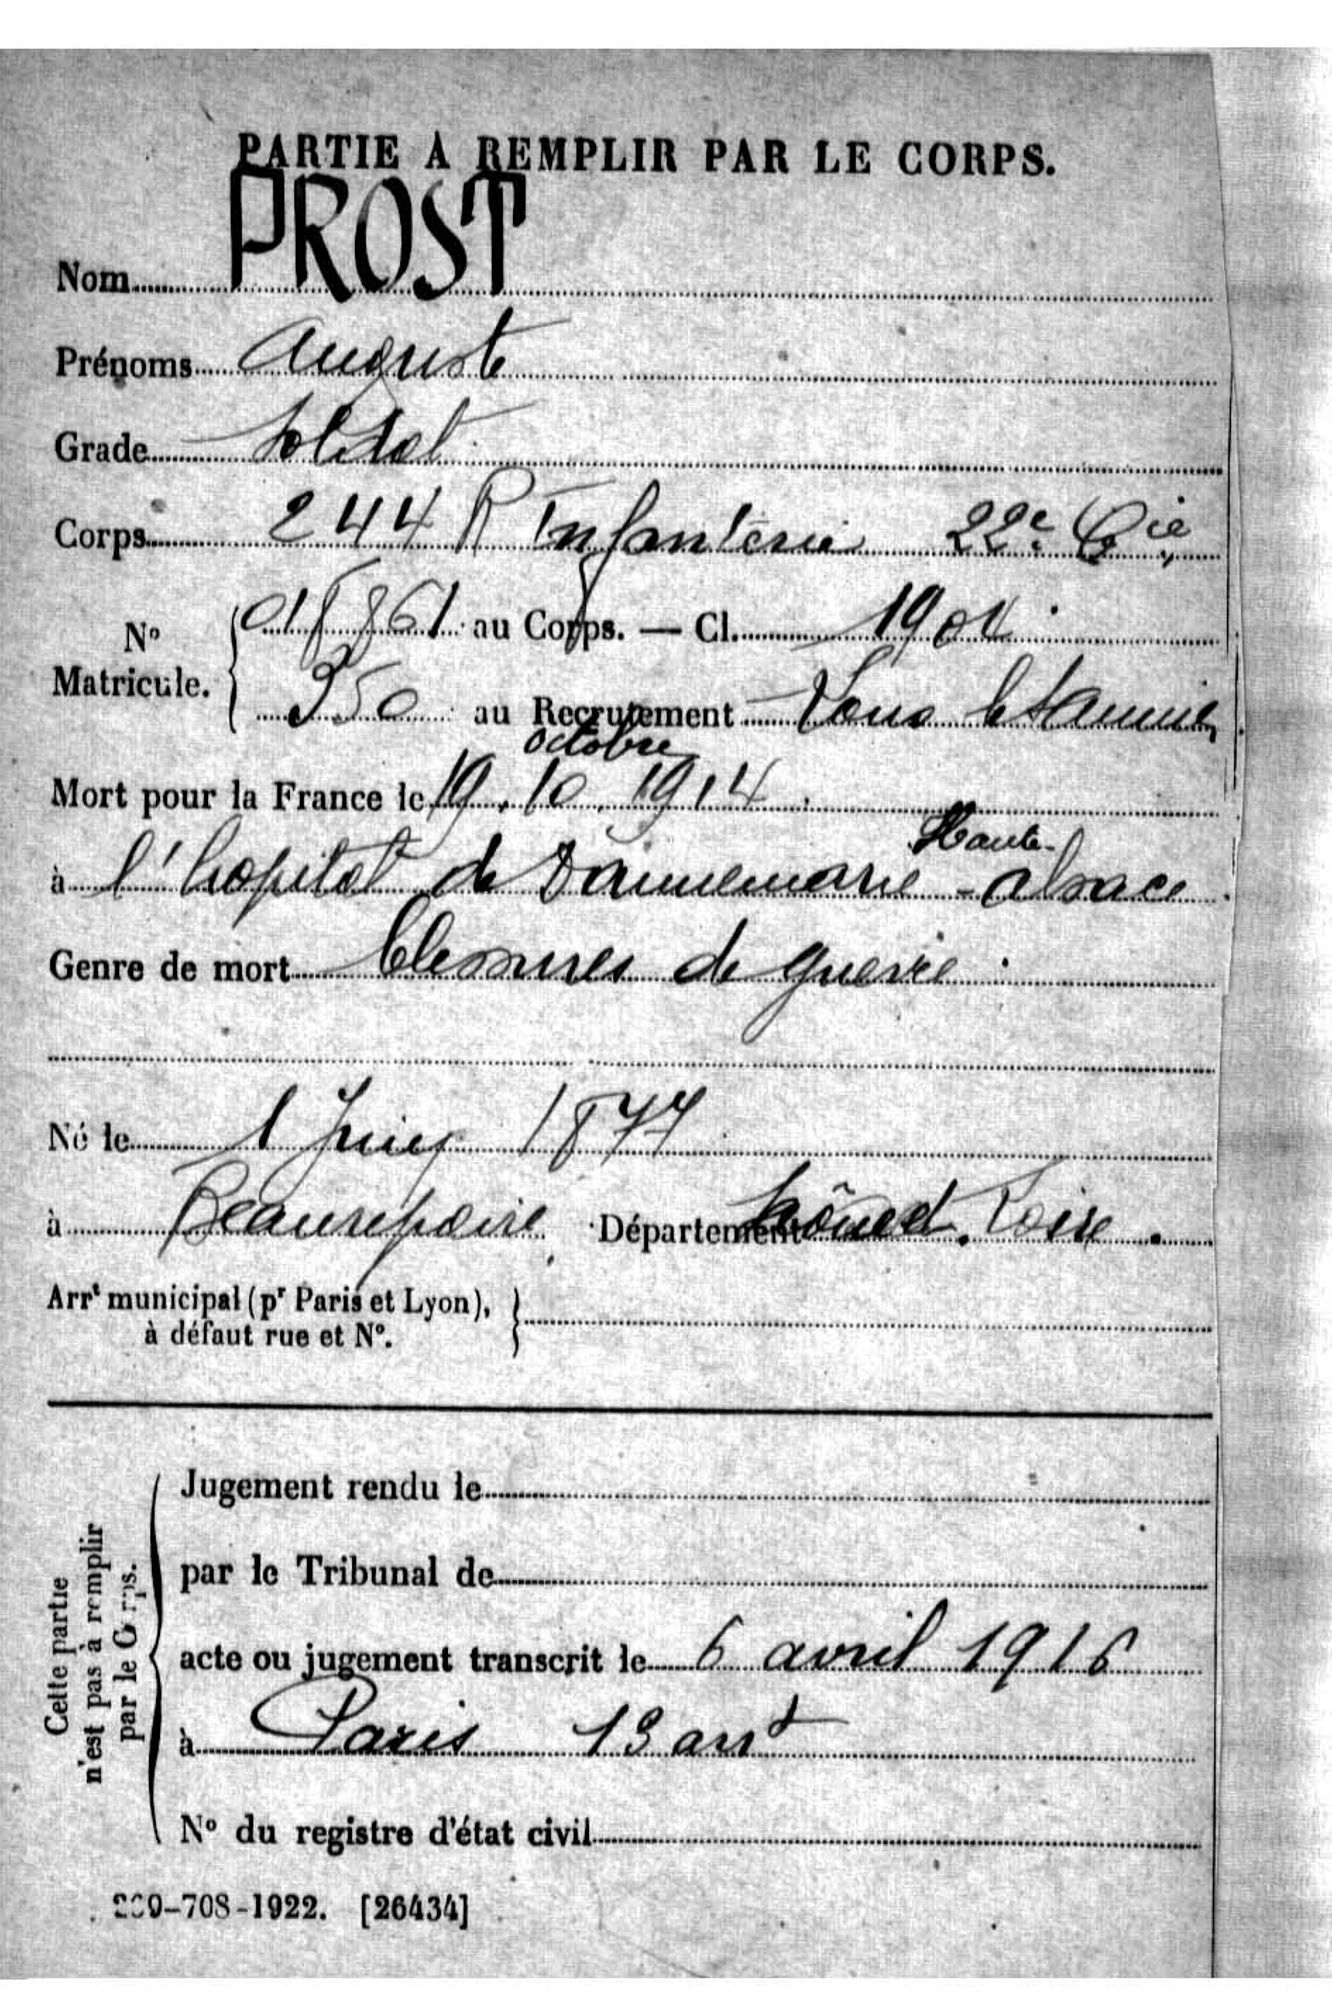 PARTIE À REMPLIR PAR LE CORPS.
Nom PROST
Prénoms Auguste
Grade Soldat
Corps 244 R Infanterie 22e Cie
No Matricule. 018861 au Corps. — Cl. 1901
350 au Recrutement Lons le Saunier
octobre
Mort pour la France le 19. 10. 1914.
Haute-
à l'hopital de Dannemarie - alsace
Genre de mort blessures de guerre
Né le 1 Juin 1877
à Beaurepaire Département Saône et Loire.
Arrt municipal (pr Paris et Lyon),
à défaut rue et No.
Cette partie
n'est pas à remplir
par le Corps.
Jugement rendu le
par le Tribunal de
acte ou jugement transcrit le 6 avril 1916
à Paris 13 arrt
No du registre d'état civil
-708-1922. [26434]